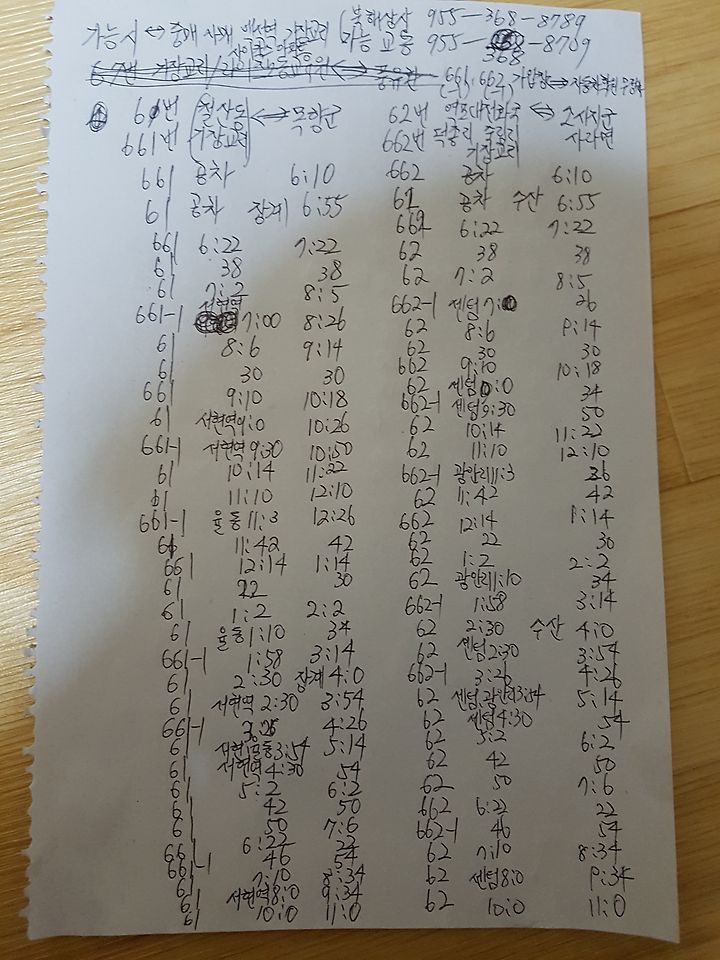 가능시 ↔ 중개 사개 백석면 가장교리 (북해상사 955-368-8789
사이클스 아파트 (가능 교통 955-368-8709
661, 662 가압장 ↔ 자동차학원
61번 (철산동 ↔ 목향군 62번 역조대전화국 ↔ 고사지군
661번 가장교리) 662번 덕중리 중림리 사라면
가장교리
661 공차 6:10 662 공차 6:10
61 공차 장계 6:55 62 공차 수산 6:55
661 6:22 7:22 662 6:22 7:22
61 38 38 62 38 38
61 7:2 8:5 62 7:2 8:5
661-1 서현역 7:00 8:26 662-1 센텀 7:0 26
61 8:6 9:14 62 8:6 9:14
61 30 30 62 30 30
661 9:10 10:18 662 9:10 10:18
61 서현역 9:0 10:26 62 센텀 0:0 34
661-1 서현역 9:30 10:50 662-1 센텀 9:30 50
61 10:14 11:22 62 10:14 11:22
61 11:10 12:10 62 11:10 12:10
661-1 율동 11:3 12:26 662-1 광안리 11:3 26
61 11:42 42 62 11:42 42
661 12:14 1:14 662 12:14 1:14
61 22 30 62 22 30
61 1:2 2:2 62 1:2 2:2
61 율동 1:10 34 62 광안리 1:10 34
661-1 1:58 3:14 662-1 1:58 3:14
61 2:30 장계 4:0 62 2:30 수산 4:0
서현역 2:30 3:54 62 센텀 2:30 3:54
661-1 3:26 4:26 662-1 3:26 4:26
61 서현,율동 3:54 5:14 62 센텀,광안리 3:54 5:14
61 서현역 4:30 54 62 센텀 4:30 54
61 5:2 6:2 62 5:2 6:2
61 42 50 62 42 50
61 50 7:6 62 50 7:6
661 6:22 22 662 6:22 22
661-1 46 54 662-1 46 54
61 7:10 8:34 62 7:10 8:34
61 서현역 8:0 9:34 62 센텀 8:0 9:34
61 10:0 11:0 62 10:0 11:0